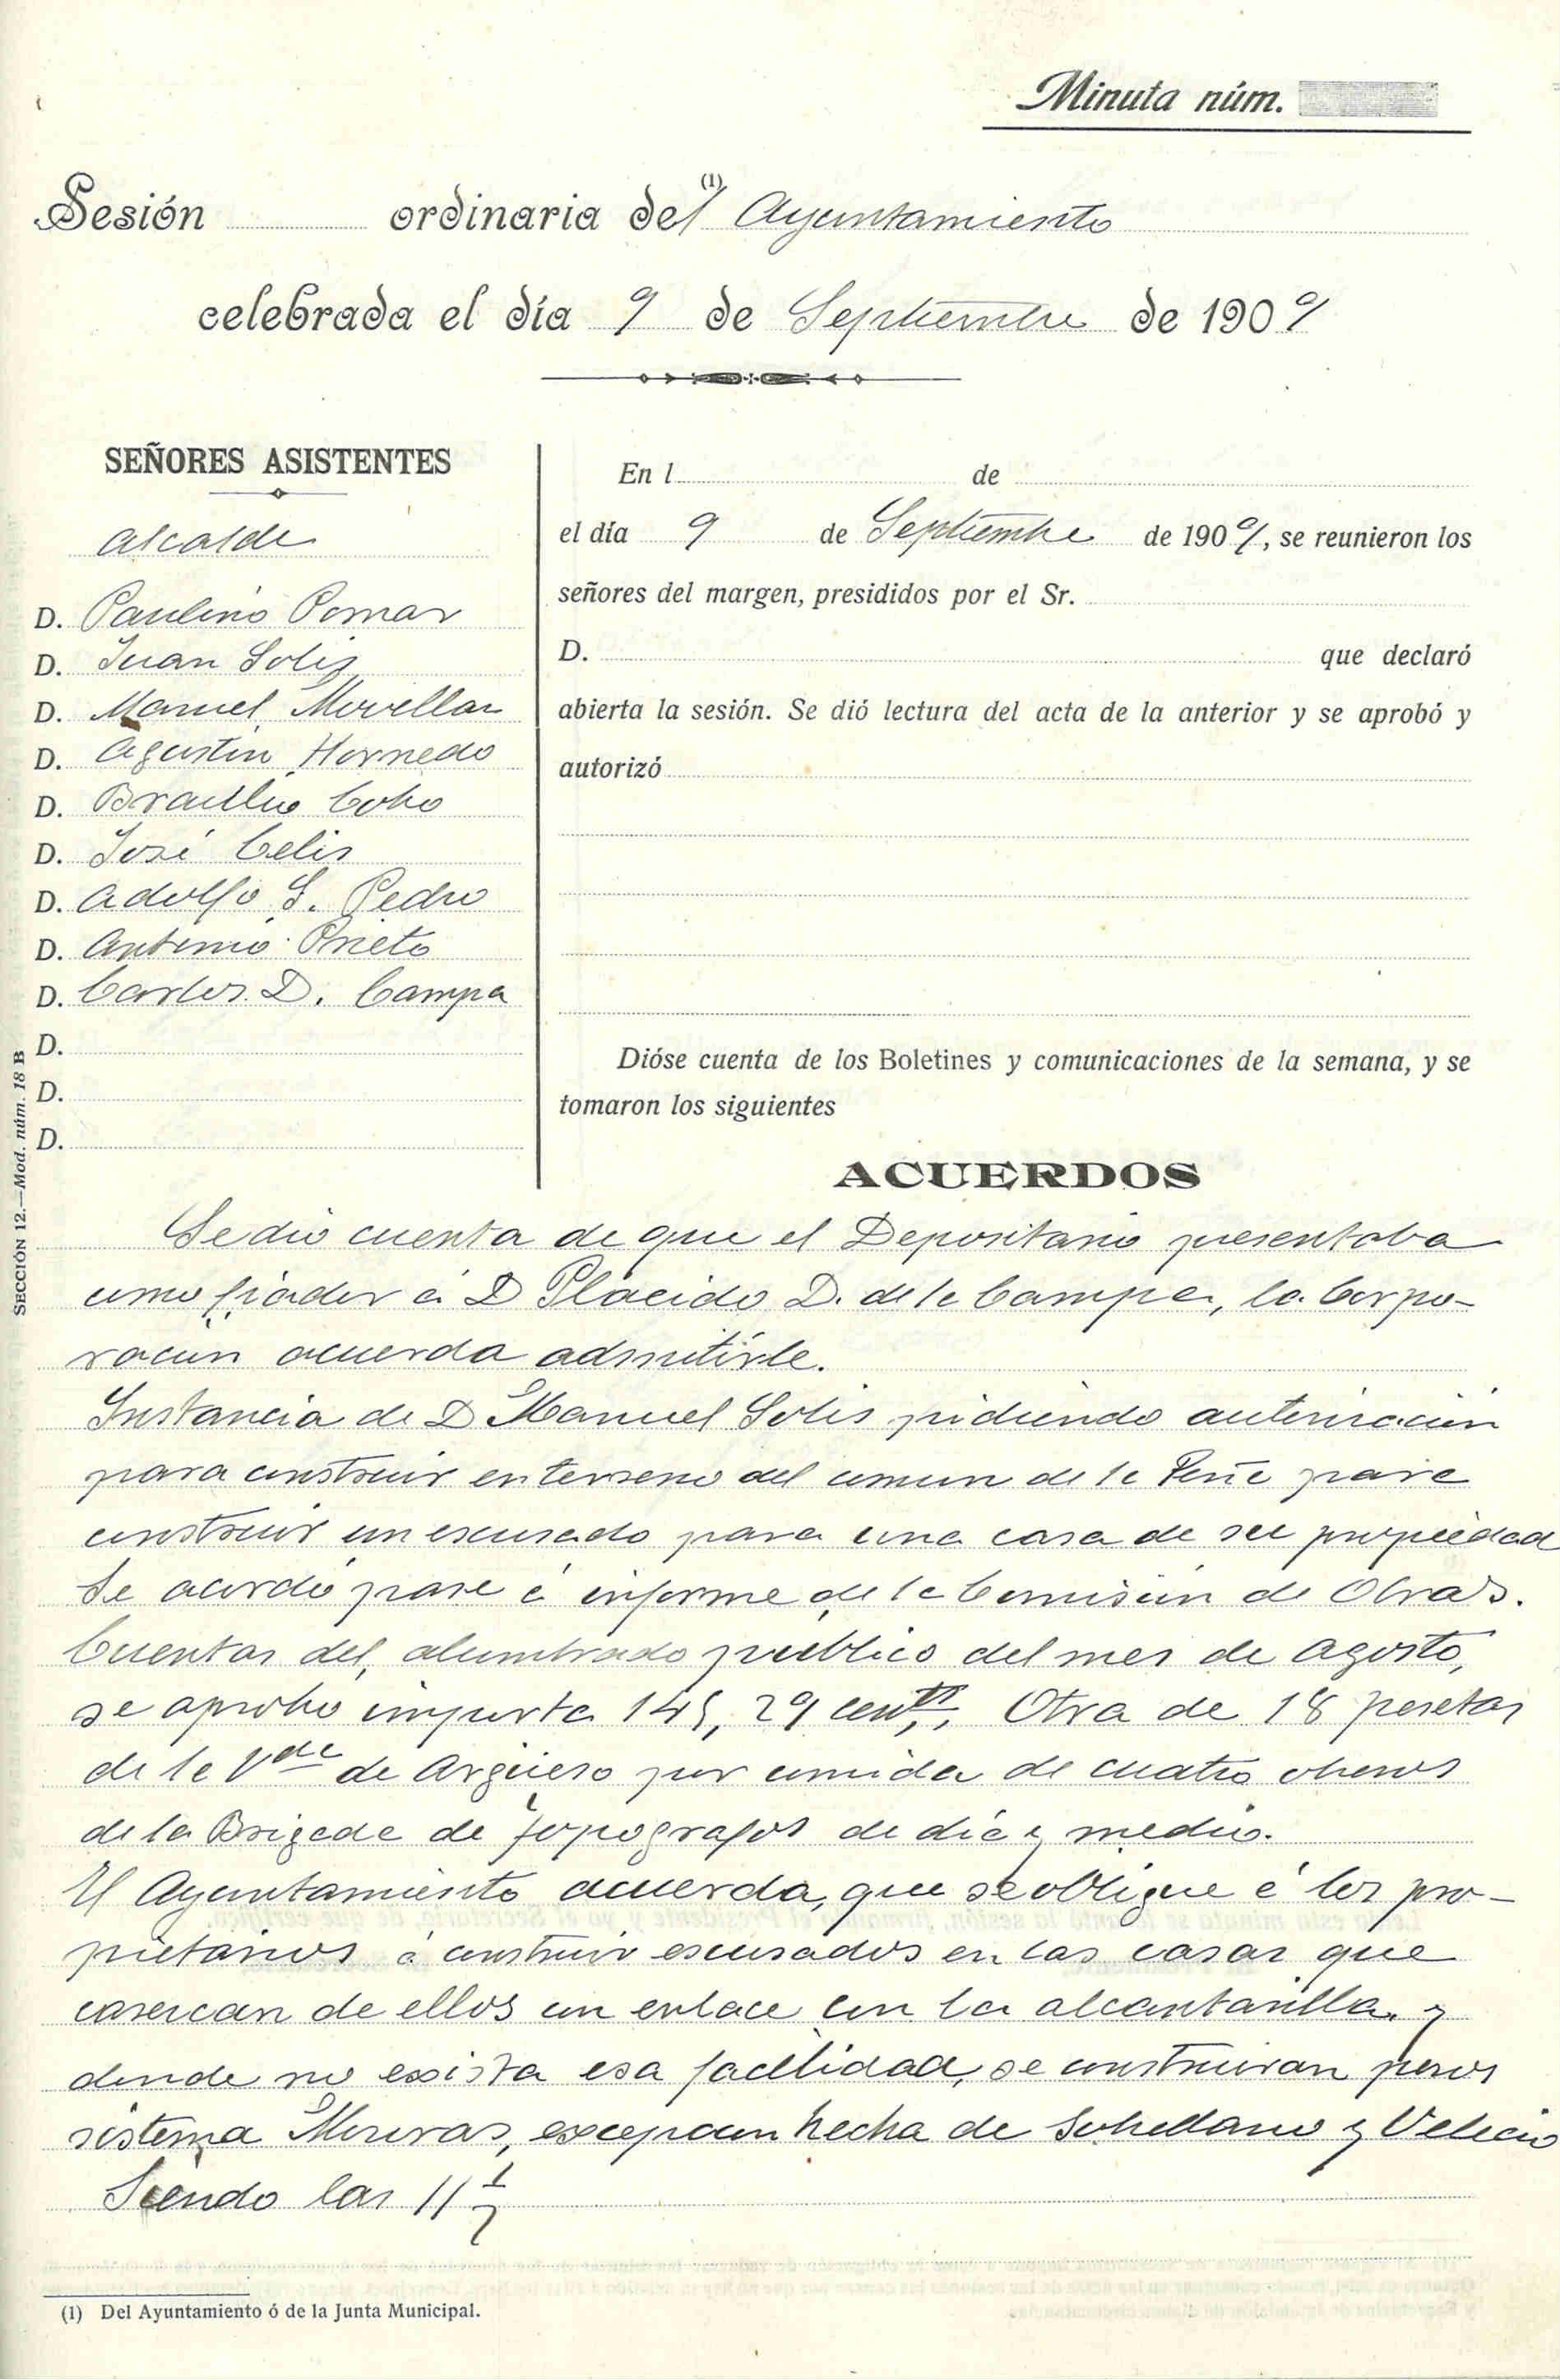 Minuta núm.
Sesión ordinaria del (1) Ayuntamiento
celebrada el día 9 de Septiembre de 1909
SEÑORES ASISTENTES
Alcalde
D. Paulino Pomar
D. Juan Solis
D. Manuel Movellan
D. Agustin Hornedo
D. Braulio Cobo
D. José Celis
D. Adolfo S. Pedro
D. Antonio Prieto
D. Carlos D. Campa
D.
D.
D.
En l de
el día 9 de Septiembre de 1909, se reunieron los
señores del margen, presididos por el Sr.
D. que declaró
abierta la sesión. Se dió lectura del acta de la anterior y se aprobó y
autorizó
Dióse cuenta de los Boletines y comunicaciones de la semana, y se
tomaron los siguientes
ACUERDOS
Se dio cuenta de que el Depositario presentaba
como fiador á D Plácido D. de la Campa, la Corpo-
racion acuerda admitirle.
Instancia de D Manuel Solis pidiendo autorizacion
para construir en terreno del comun de la Peña para
construir un escusado para una casa de su propiedad
Se acordó pase á informe de la Comisión de Obras.
Cuentas del alumbrado publico del mes de agosto,
se aprobo importa 145, 29 cents. Otra de 18 pesetas
de la Vda de Argüeso por comida de cuatro obreros
de la Brigada de topografos de dia y medio.
El Ayuntamiento acuerda, que se obligue á los pro-
pietarios á construir escusados en las casas que
carezcan de ellos con enlace con la alcantarilla y
donde no exista esa facilidad, se construiran pozos
sistema Mouras, excepcion hecha de Sobrellano y Velecio
Siendo las 11 ½
SECCIÓN 12.—Mod. núm. 18 B
(1) Del Ayuntamiento ó de la Junta Municipal.